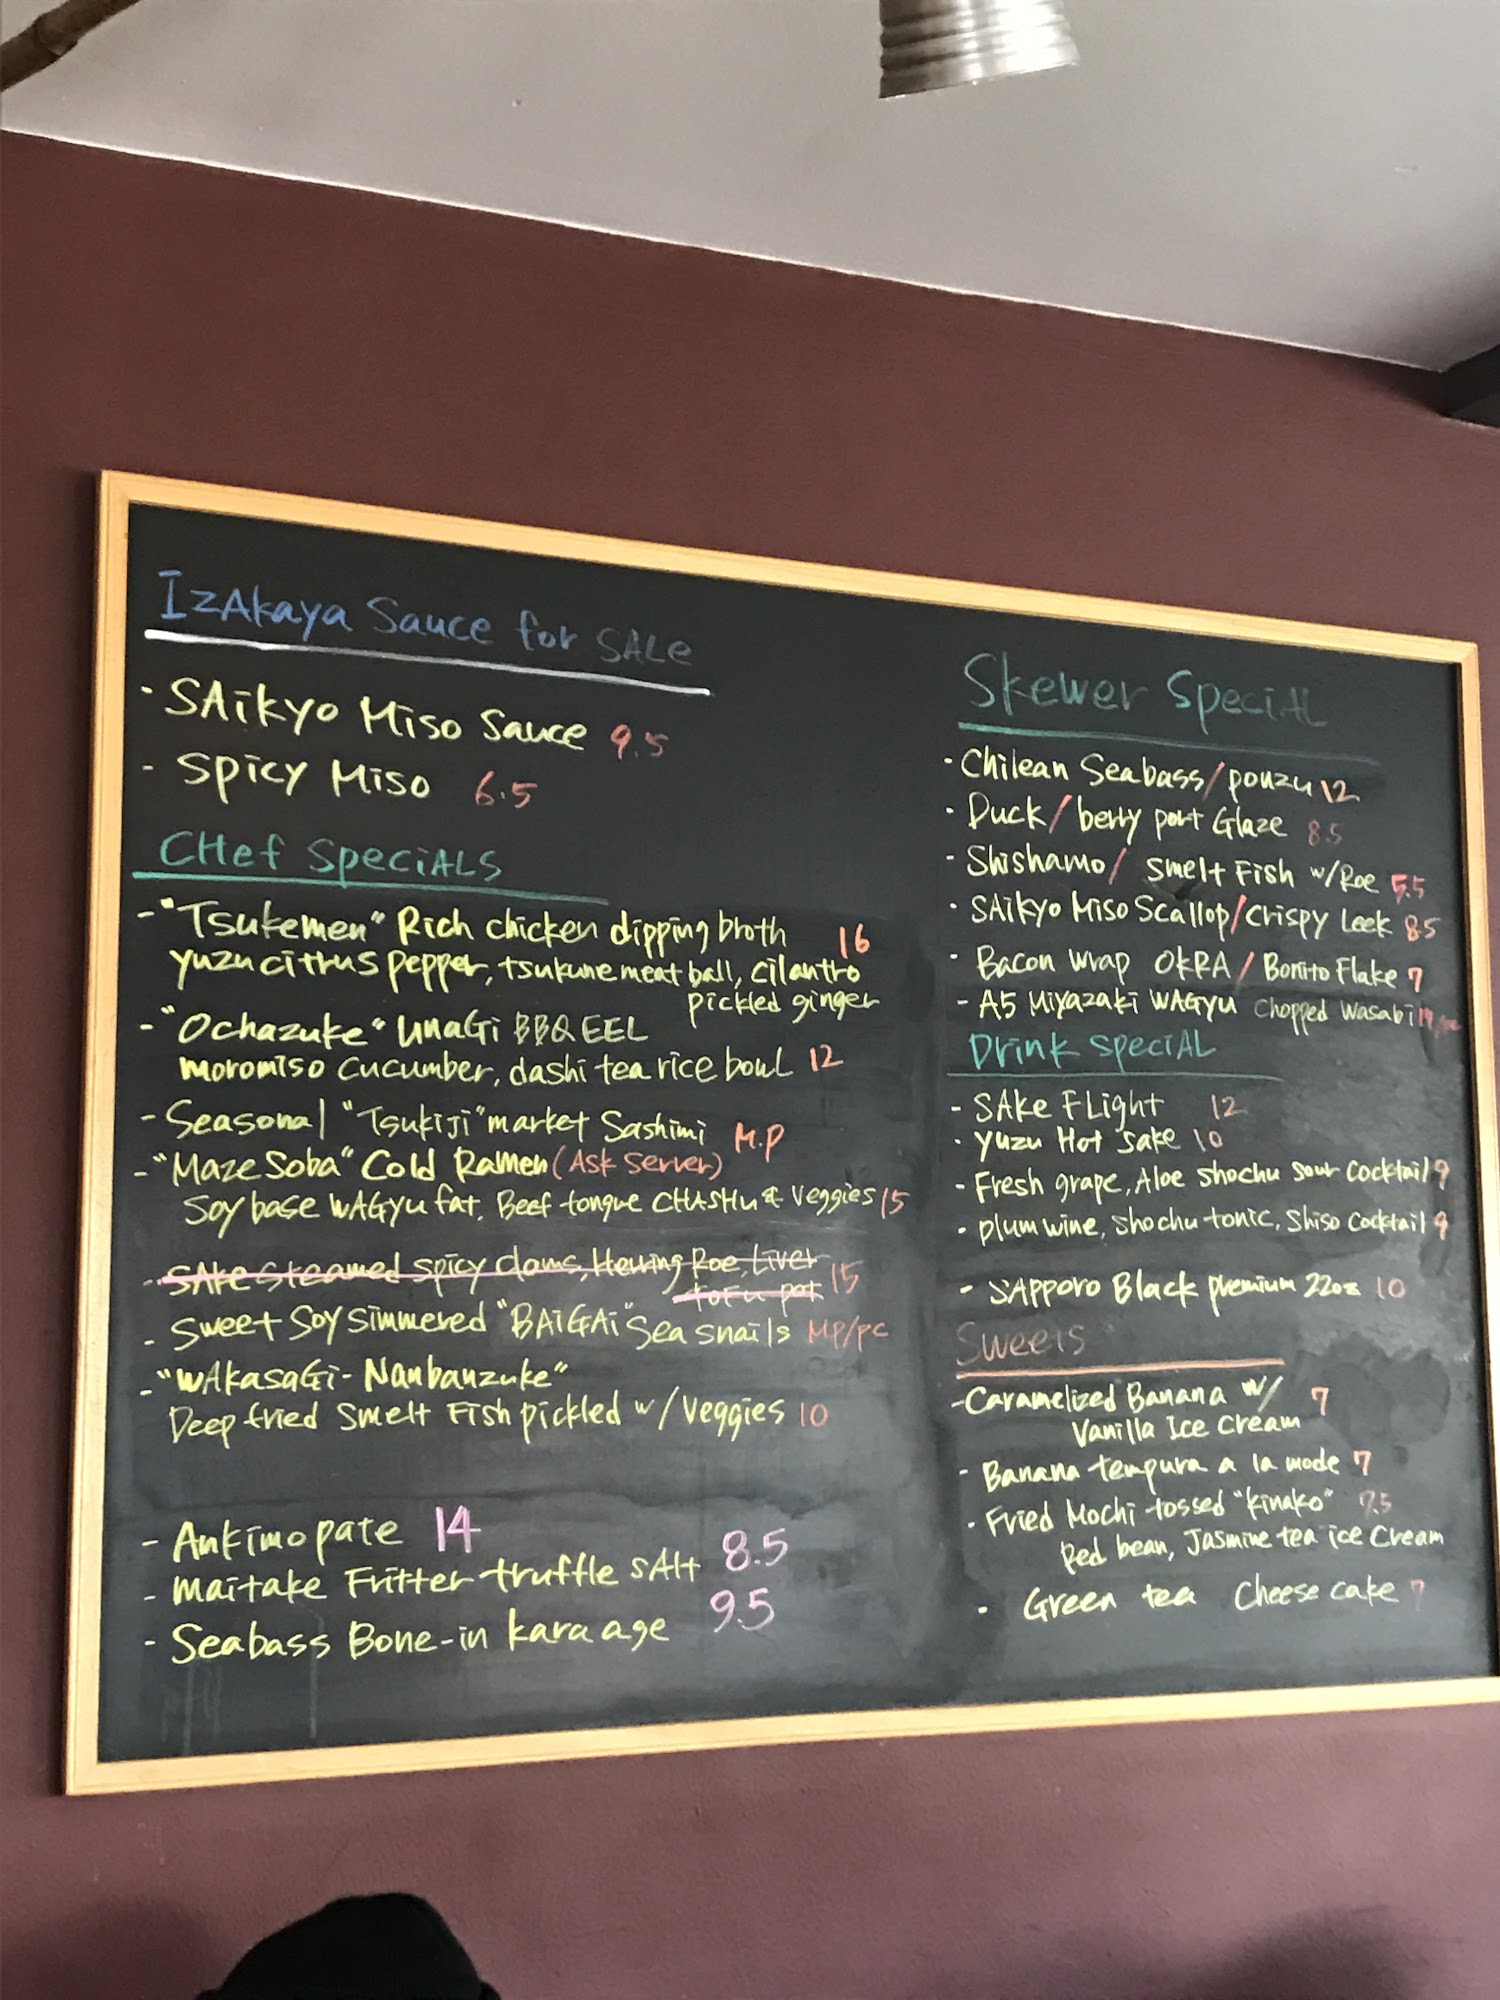 IzAkaya Sauce for SALe
· SAikyo Miso Sauce 9.5
- Spicy Miso 6.5
CHef SpeciALS
- "Tsukemen" Rich chicken dipping broth 16
yuzu citrus pepper, tsukune meat ball, cilantro
pickled ginger
- "Ochazuke" UnaGi BBQ EEL
moromiso cucumber, dashi tea rice bowl 12
- Seasonal "Tsukiji" market Sashimi M.P
- "Maze Soba" Cold Ramen (Ask Server)
Soy base WAGyu fat, Beef tongue CHASHU & Veggies 15
- SAke Steamed Spicy clams, Herring Roe, Liver 15
TOFU pot
- Sweet Soy Simmered "BAiGAi" Sea snails MP/pc
- "WAkasaGi - Nanbanzuke"
Deep fried Smelt Fish pickled w/ Veggies 10
- Ankimo pate 14
- Maitake Fritter truffle SAlt 8.5
- Seabass Bone-in karaage 9.5
Skewer SpeciAL
· Chilean Seabass / ponzu 12
· Duck / berry port Glaze 8.5
- Shishamo / Smelt Fish w/Roe 5.5
· SAikyo Miso Scallop / Crispy Leek 8.5
· Bacon wrap OKRA / Bonito Flake 7
- A5 Miyazaki WAGyU Chopped Wasabi
Drink SpeciAL
- SAke FLight 12
- Yuzu Hot Sake 10
- Fresh grape, Aloe Shochu sour Cocktail 9
- Plum wine, Shochu tonic, Shiso Cocktail 9
- SApporo Black premium 22oz 10
Sweets
- Caramelized Banana w/ 7
Vanilla Ice Cream
- Banana tempura a la mode 7
· Fried Mochi tossed "kinako" 7.5
Red bean, Jasmine tea ice Cream
· Green tea Cheese cake 7